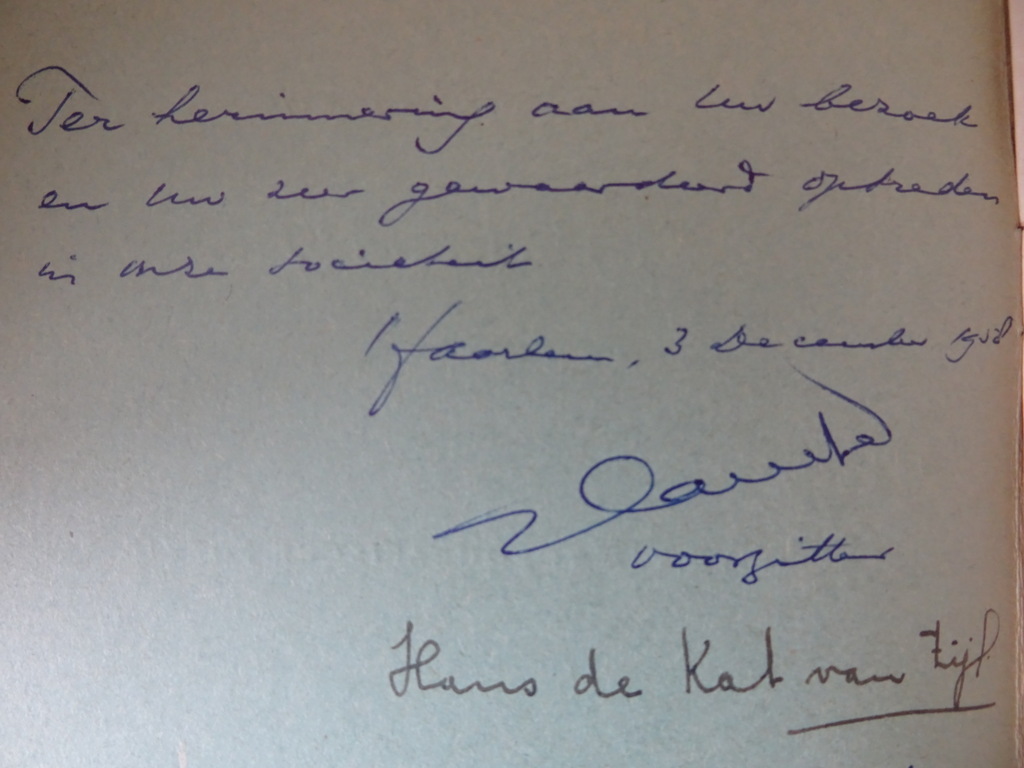 Ter herinnering aan Uw bezoek
en Uw zeer gewaardeerd optreden
in onze societeit
Haarlem, 3 December 1958
voorzitter
Hans de Kat van Zijl